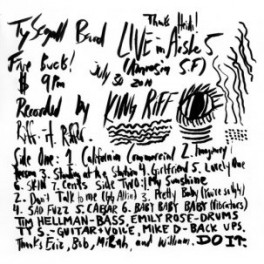 Thanks Heidi!
Ty Segall Band LIVE in Aisle 5
Five Bucks! (Amnesia S.F)
$ 9pm July 30 2011
Recorded by KING RIFF
Riff. A. Rifle.
Side One: 1. California Commercial 2. Imaginary
Person 3. Standing at the Station 4. Girlfriend 5. Lovely One
6. SKIN 7. Cents Side TWO: 1. My Sunshine
2. Don't Talk to me (GG Allin) 3. Pretty Baby
4. SAD FUZZ 5. CAESAR 6. BABY BABY BABY (Vibrators)
TIM HELLMAN-BASS EMILY ROSE-DRUMS
TY S.-GUITAR+VOICE, MIKE D-BACK UPS.
Thanks Eric, Bob, MiRah, and William. DO IT.